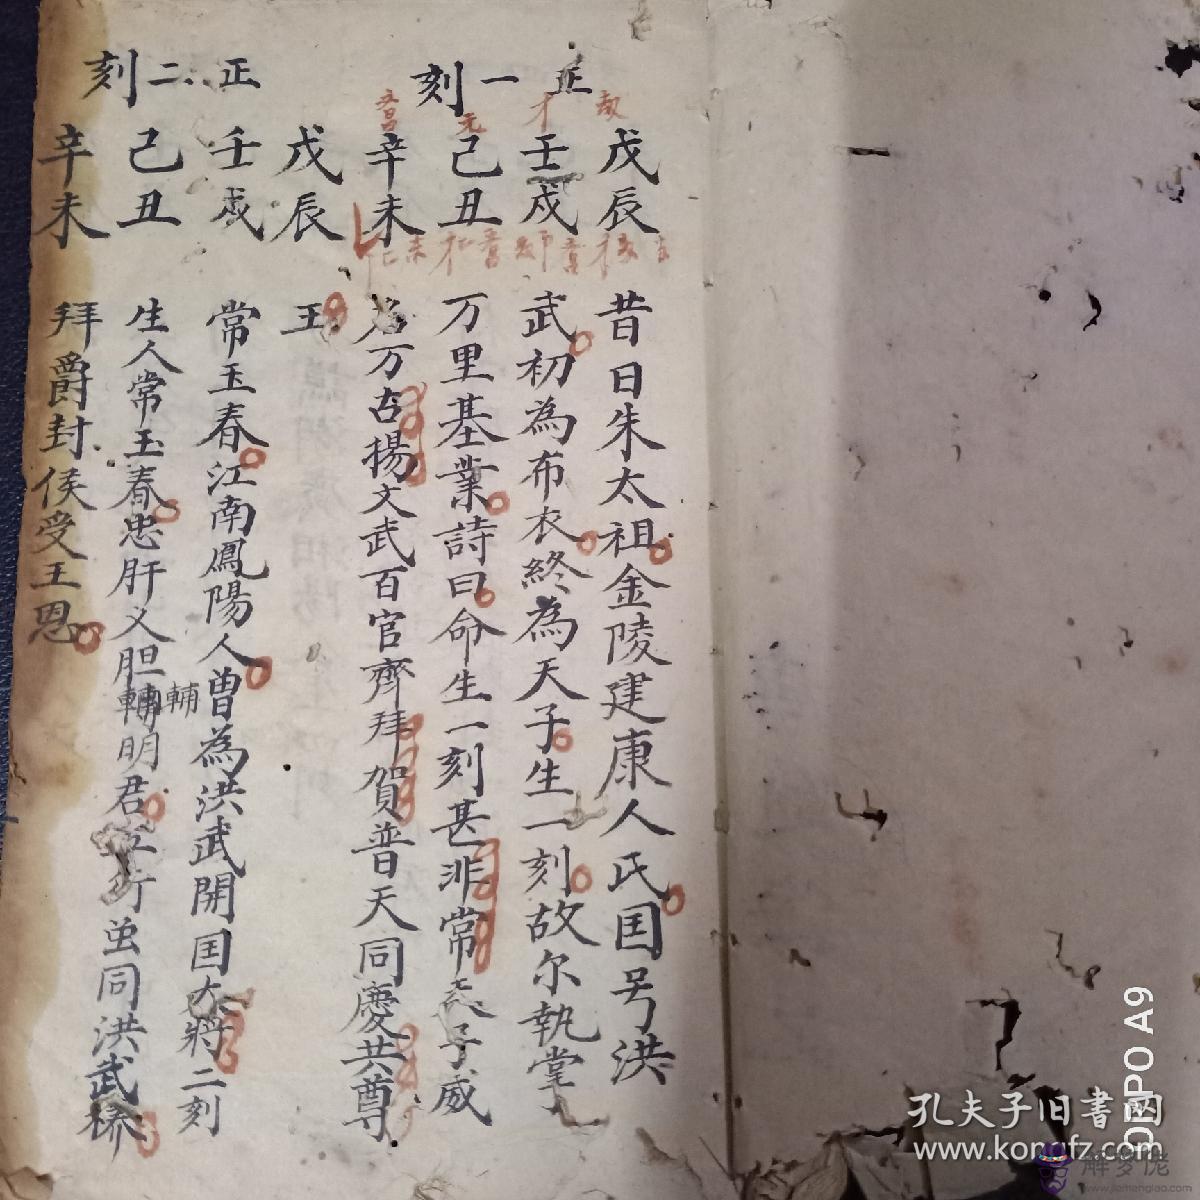 正一刻
劫 才 元
戊辰
壬戌
己丑
辛未
昔日朱太祖金陵建康人氏囯号洪
武初為布衣終為天子生一刻故尔執掌
万里基業詩曰命生一刻甚非常天子威
名万古揚文武百官齊拜賀普天同慶共尊
王
正二刻
戊辰
壬戌
己丑
辛未
常玉春江南鳳陽人曾為洪武開囯大將二刻
生人常玉春忠肝义胆輔明君五行虽同洪武
輔
拜爵封侯受王恩
OPPO A9
孔夫子旧書网
www.kongfz.com
解梦佬
www.jiemenglao.com